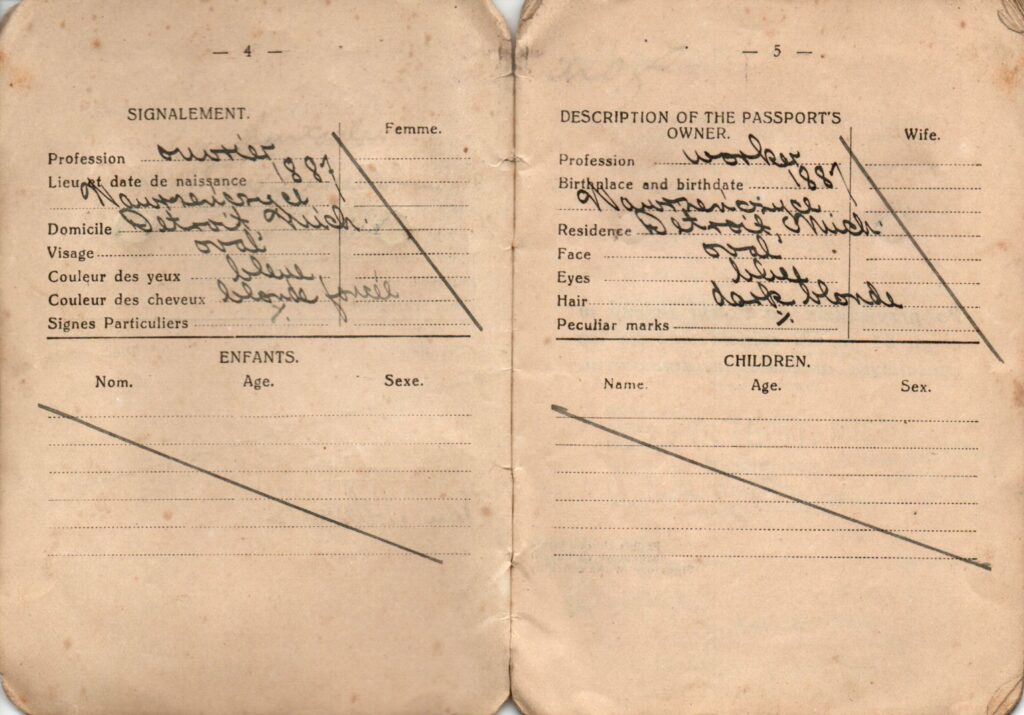 — 4 —
SIGNALEMENT.
Femme.
Profession ouvrier
Lieu et date de naissance 1887
Nawrzenczyce
Domicile Detroit, Mich.
Visage oval
Couleur des yeux bleue
Couleur des cheveux blonde foncée
Signes Particuliers %
ENFANTS.
Nom. Age. Sexe.
— 5 —
DESCRIPTION OF THE PASSPORT'S
OWNER.
Wife.
Profession worker
Birthplace and birthdate 1887
Nawrzenczyce
Residence Detroit, Mich.
Face oval
Eyes blue
Hair dark blonde
Peculiar marks %
CHILDREN.
Name. Age. Sex.